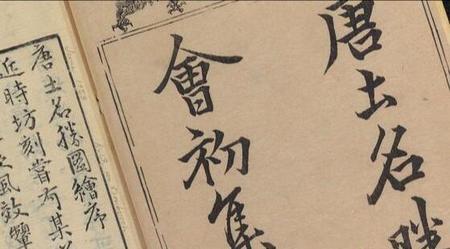 唐土名勝
會初集
唐土名勝圖繪序
近時坊刻嘗有
風效顰